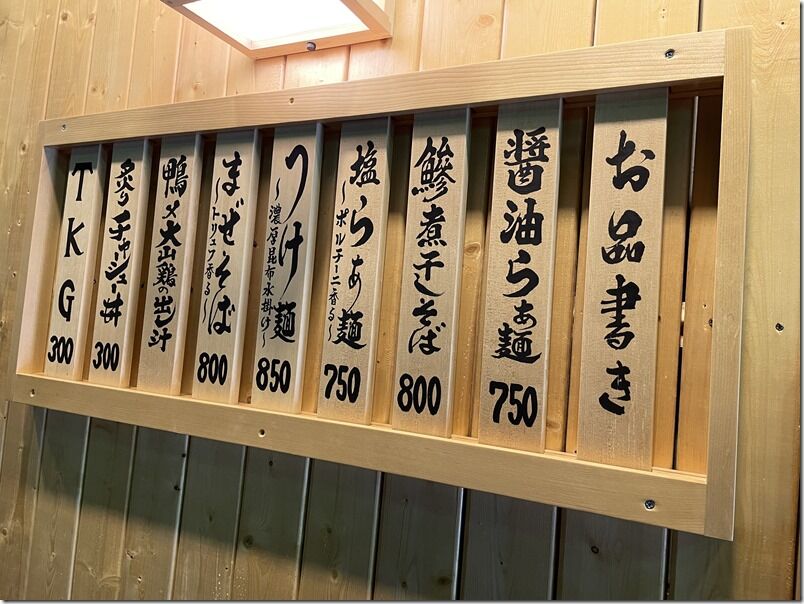 お品書き
醤油らぁ麺
750
鯵煮干しそば
800
塩らぁ麺
～ポルチーニ香る～
750
つけ麺
～濃厚昆布水掛け～
850
まぜそば
～トリュフ香る～
800
鴨〆大山鶏の出し汁
炙りチャーシュー丼
300
TKG
300